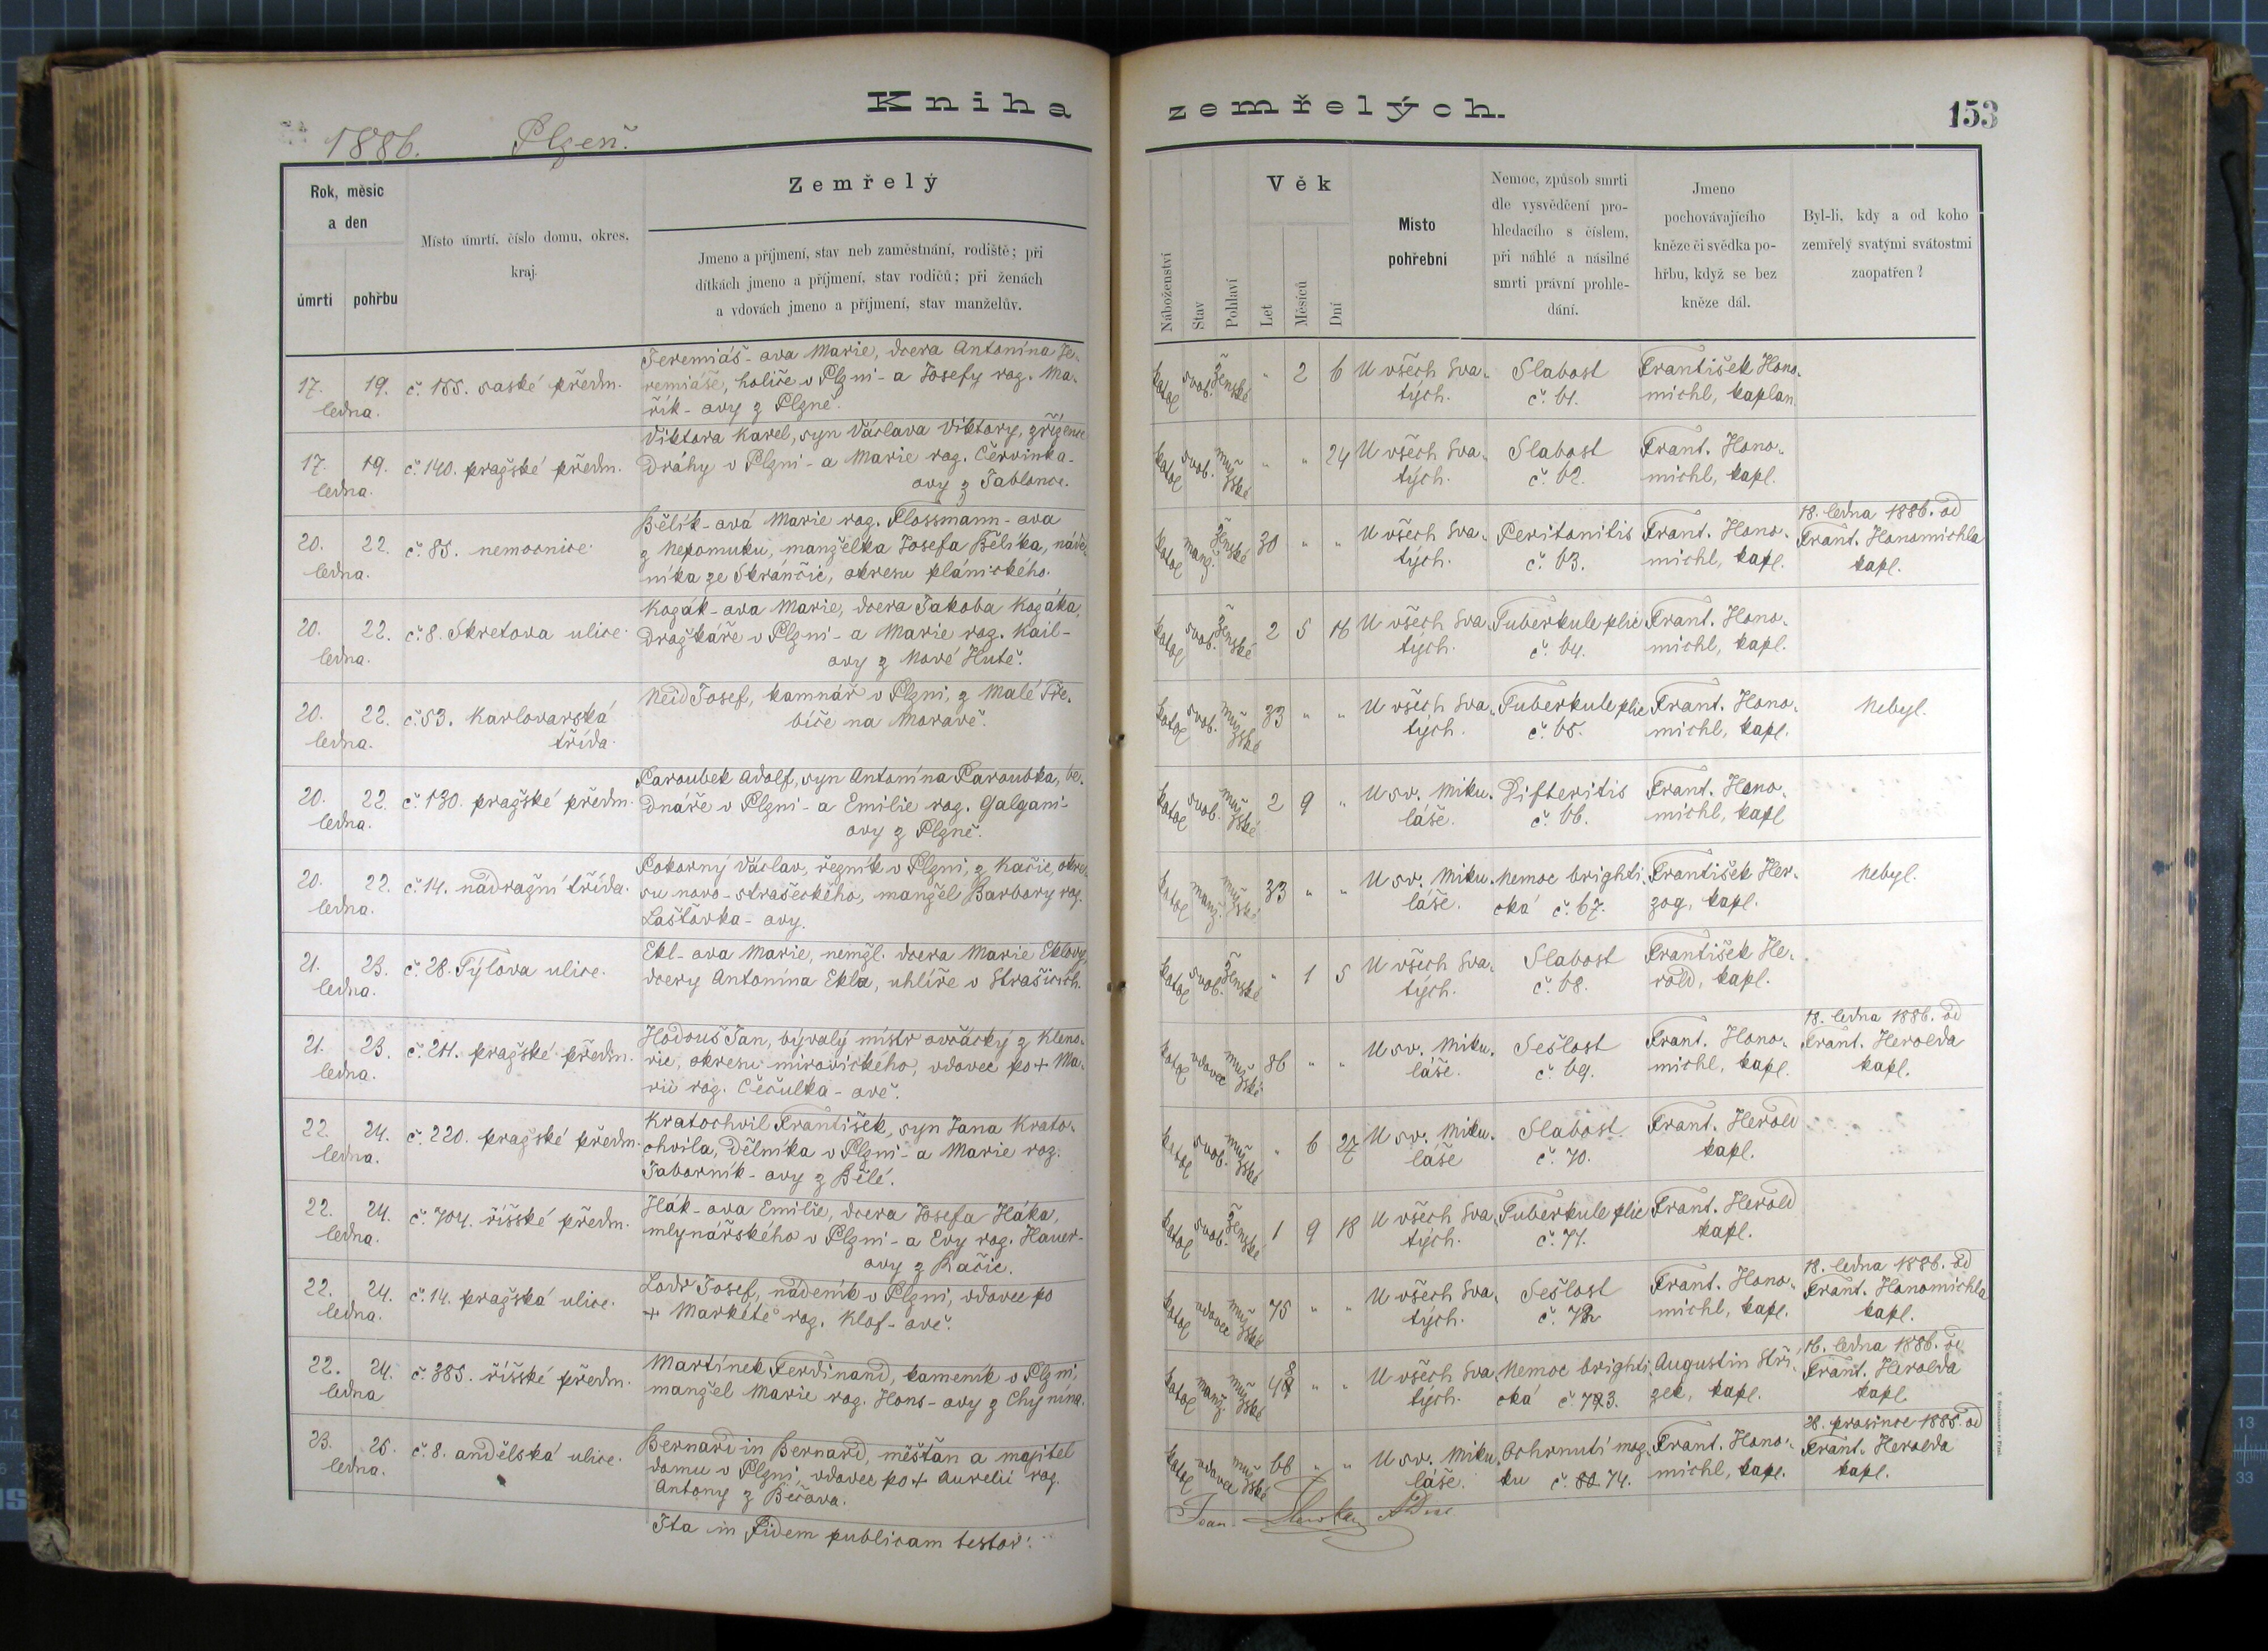 Kniha zemřelých.
153
1886. Plzeň.
Rok, měsíc a den
úmrtí
pohřbu
Místo úmrtí, číslo domu, okres, kraj.
Zemřelý
Jmeno a příjmení, stav neb zaměstnání, rodiště; při
dítkách jmeno a příjmení, stav rodičů; při ženách
a vdovách jmeno a příjmení, stav manželův.
Náboženství
Stav
Pohlaví
Věk
Let
Měsíců
Dní
Místo pohřební
Nemoc, způsob smrti
dle vysvědčení pro-
hledacího s číslem,
při náhlé a násilné
smrti právní prohle-
dání.
Jmeno
pochovávajícího
kněze či svědka po-
hřbu, když se bez
kněze dál.
Byl-li, kdy a od koho
zemřelý svatými svátostmi
zaopatřen?
17. 19. č. 155. saské předm.
ledna.
Jeremiáš-ova Marie, dcera Antonína Je-
remiáše, holiče v Plzni - a Josefy roz. Ma-
řík-ovy z Plzně.
katol svob. ženské " 2 6 U všech Sva- Slabost František Hono-
tých. č. 61. michl, kaplan.
17. 19. č. 140. pražské předm.
ledna.
Viktora Karel, syn Václava Viktory, zřízence
dráhy v Plzni - a Marie roz. Červinka-
ovy z Jablonce.
katol svob. mužské " " 24 U všech Sva- Slabost Frant. Hono-
tých. č. 62. michl, kapl.
20. 22. č. 85. nemocnice.
ledna.
Bělík-ová Marie roz. Flossmann-ova
z Nepomuku, manželka Josefa Bělíka, náde-
níka ze Skránčic, okresu plánického.
katol manž. ženské 30 " " U všech Sva- Peritonitis Frant. Hono-
tých. č. 63. michl, kapl.
18. ledna 1886. od
Frant. Honomichla
kapl.
20. 22. č. 8. Skretova ulice.
ledna.
Kozák-ova Marie, dcera Jakoba Kozáka,
drožkáře v Plzni - a Marie roz. Kail-
ovy z Nové Hutě.
katol svob. ženské 2 5 16 U všech Sva- Tuberkule plic Frant. Hono-
tých. č. 64. michl, kapl.
20. 22. č. 53. Karlovarská
ledna. třída.
Neid Josef, kamnář v Plzni, z Malé Tře-
bíče na Moravě.
katol svob. mužské 33 " " U všech Sva- Tuberkule plic Frant. Hono- Nebyl.
tých. č. 65. michl, kapl.
20. 22. č. 130. pražské předm.
ledna.
Paroubek Adolf, syn Antonína Paroubka, be-
dnáře v Plzni - a Emilie roz. Galgani-
ovy z Plzně.
katol svob. mužské 2 9 " U sv. Miku- Difteritis Frant. Hono-
láše. č. 66. michl, kapl
20. 22. č. 14. nádražní třída.
ledna.
Pokorný Václav, řezník v Plzni, z Kačic, okre-
su novo-strašeckého, manžel Barbory roz.
Laštovka-ovy.
katol manž. mužské 33 " " U sv. Miku- Nemoc brighti- František Her- Nebyl.
láše. cká č. 67. zog, kapl.
21. 23. č. 28. Týlova ulice.
ledna.
Ekl-ova Marie, nemžl. dcera Marie Eklovy,
dcery Antonína Ekla, uhlíře v Strašicích.
katol svob. ženské " 1 5 U všech Sva- Slabost František He-
tých. č. 68. rold, kapl.
21. 23. č. 211. pražské předm.
ledna.
Hodouš Jan, bývalý mistr ovčácký z Kleno-
vic, okresu mirovického, vdovec po + Ma-
rii roz. Čečulka-ově.
katol vdovec mužské 86 " " U sv. Miku- Sešlost Frant. Hono-
láše. č. 69. michl, kapl.
18. ledna 1886. od
Frant. Herolda
kapl.
22. 24. č. 220. pražské předm.
ledna.
Kratochvil František, syn Jana Krato-
chvila, dělníka v Plzni - a Marie roz.
Táborník-ovy z Bělé.
katol svob. mužské " 6 27 U sv. Miku- Slabost Frant. Herold
láše č. 70. kapl.
22. 24. č. 704. říšské předm.
ledna.
Hák-ova Emilie, dcera Josefa Háka,
mlynářského v Plzni - a Evy roz. Hauer-
ovy z Račic.
katol svob. ženské 1 9 18 U všech Sva- Tuberkule plic Frant. Herold
tých. č. 71. kapl.
22. 24. č. 14. pražská ulice.
ledna.
Lodr Josef, nádeník v Plzni, vdovec po
+ Markétě roz. Klof-ově.
katol vdovec mužské 75 " " U všech Sva- Sešlost Frant. Hono-
tých. č. 72 michl, kapl.
18. ledna 1886. od
Frant. Honomichla
kapl.
22. 24. č. 385. říšské předm.
ledna
Martínek Ferdinand, kameník v Plzni,
manžel Marie roz. Hons-ovy z Chynína.
katol manž. mužské 48 " " U všech Sva- Nemoc brighti- Augustin Stří-
tých. cká č. 73. zek, kapl.
16. ledna 1886. od
Frant. Herolda
kapl.
23. 25. č. 8. andělská ulice.
ledna.
Bernardin Bernard, měšťan a majitel
domu v Plzni, vdovec po + Aurelii roz.
Antony z Bečova.
katol vdovec mužské 66 " " U sv. Miku- Ochrnutí moz- Frant. Hono-
láše. ku č. 74. michl, kapl.
28. prosince 1885. od
Frant. Herolda
kapl.
Ita in Fidem publicam testor:
Joan.